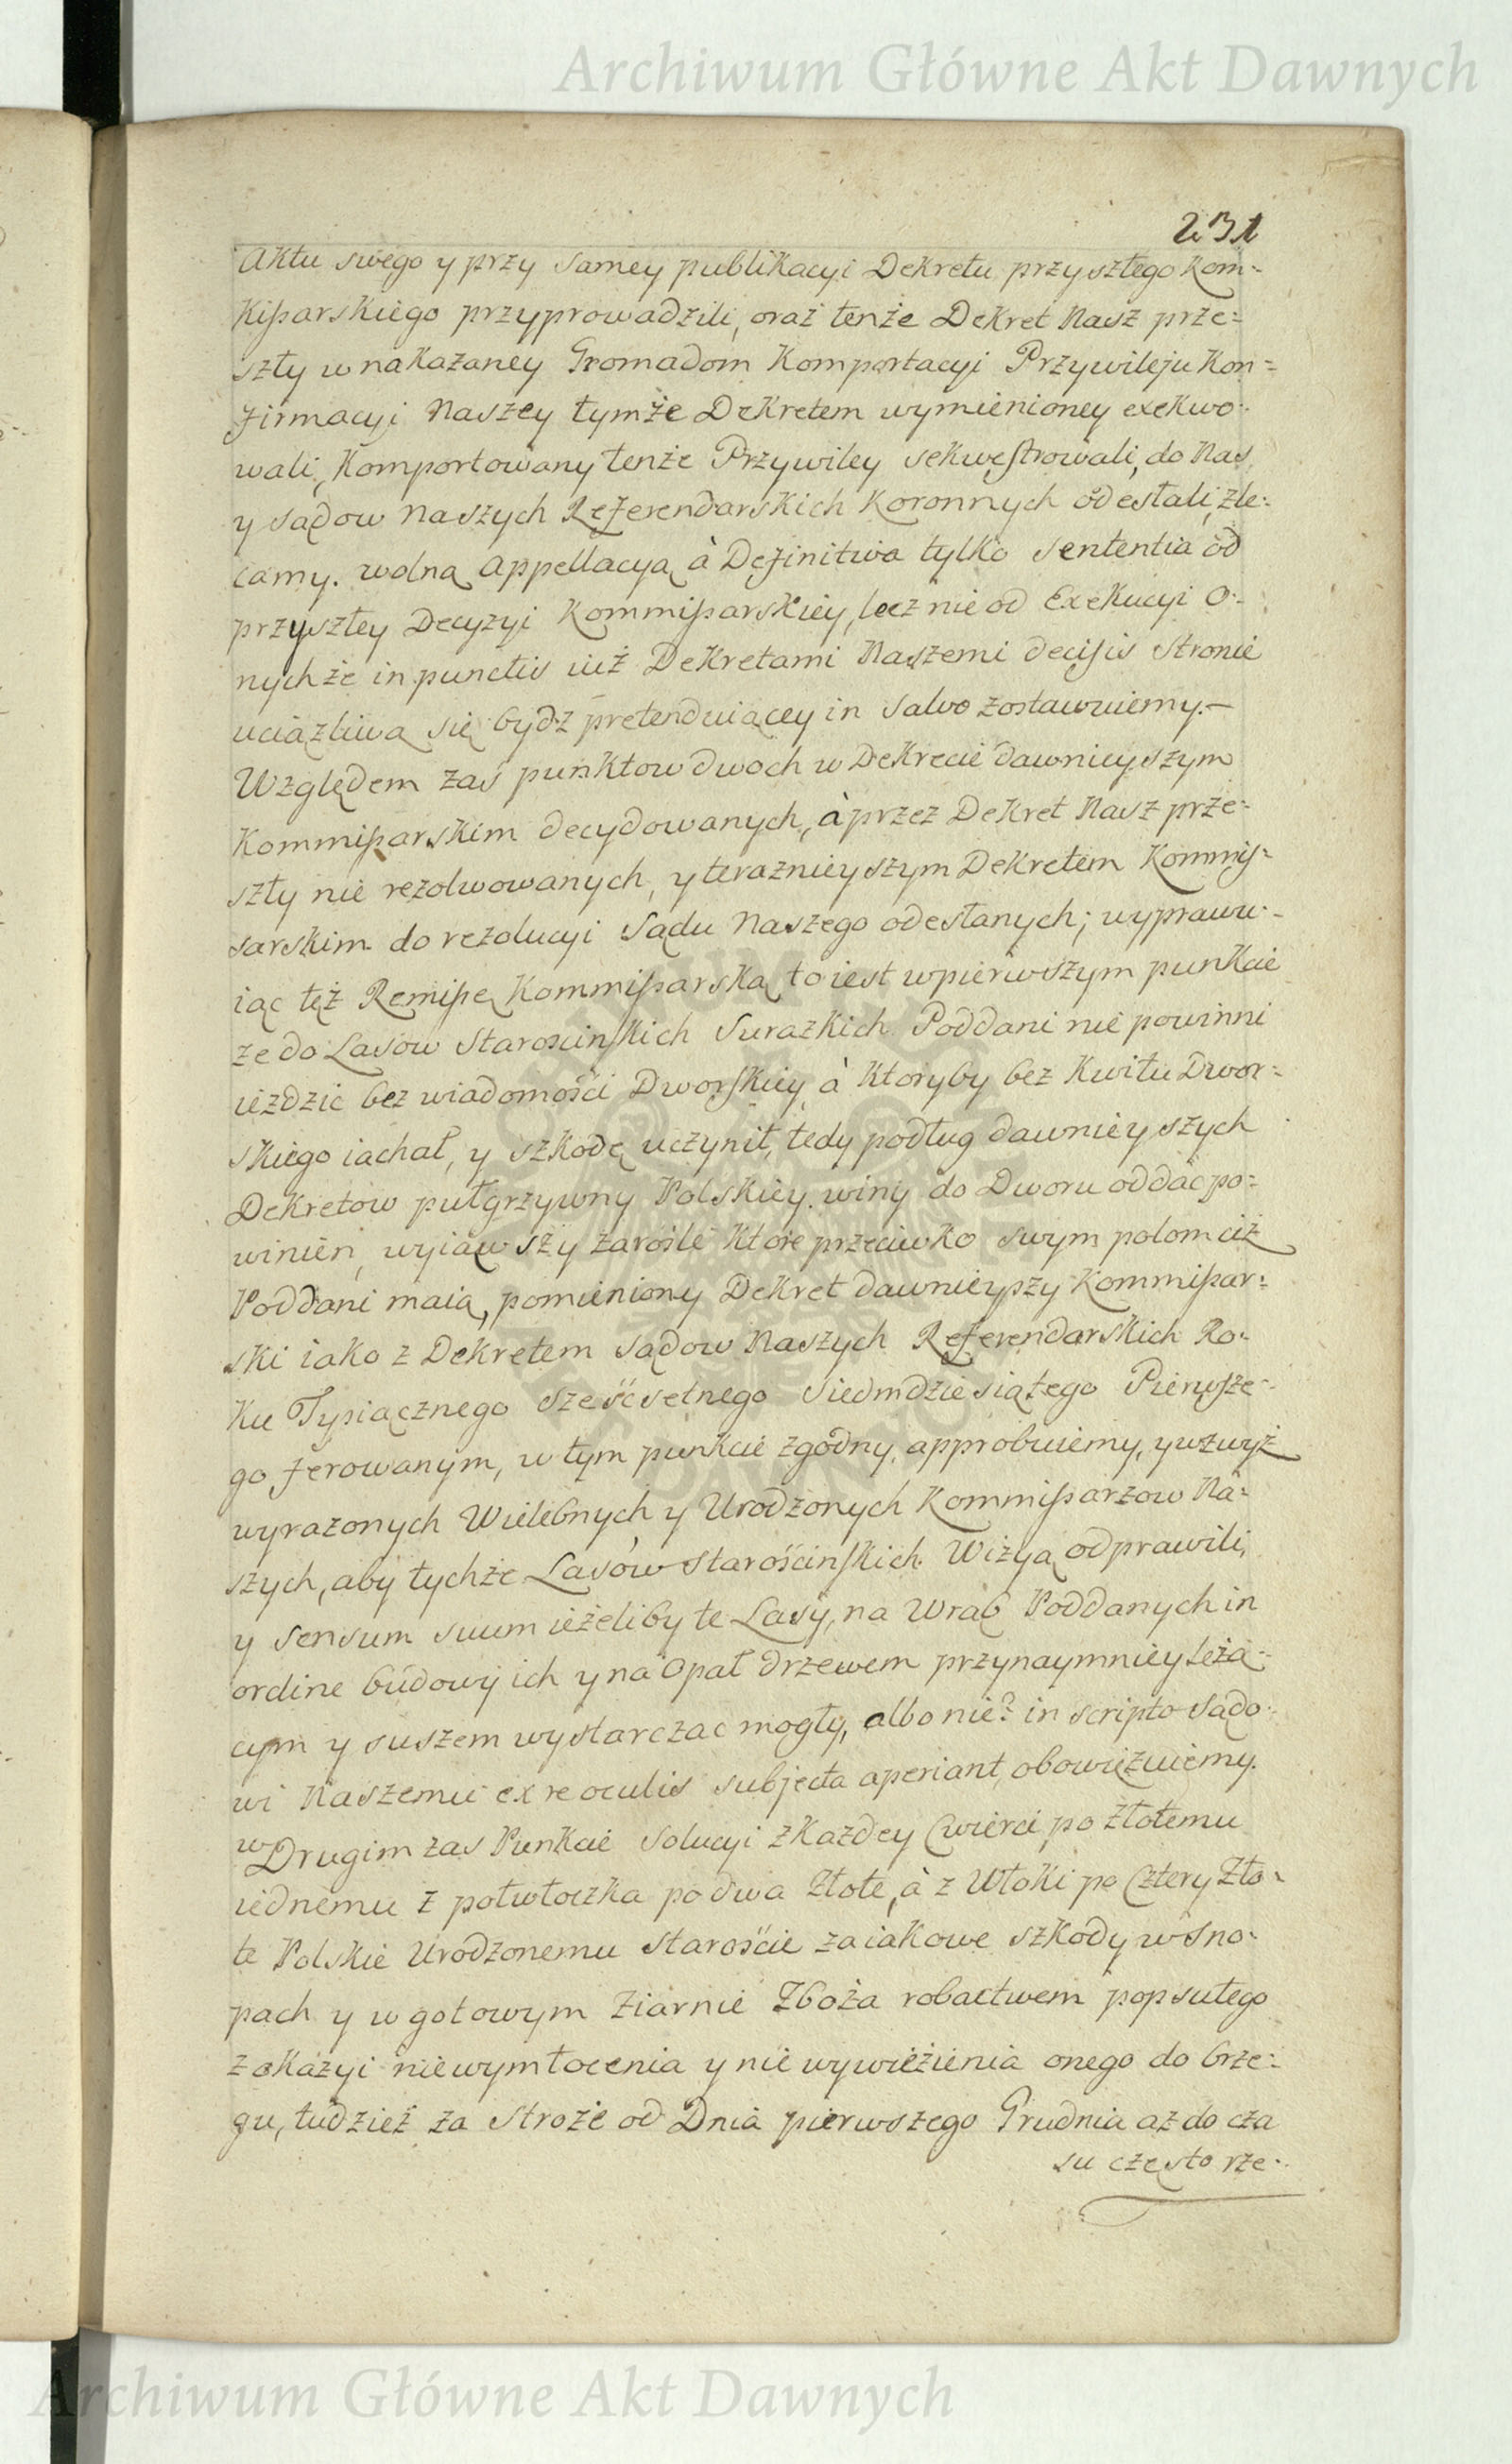 Archiwum Główne Akt Dawnych
231
Aktu swego y przy samey publikacyi Dekretu przyszłego Kom-
kißarskiego przyprowadzili, oraz tenże Dekret Nasz prze-
szły w nakazaney Gromadom Komportacyi Przywileju Kon-
firmacyi Naszey tymże Dekretem wymienioney exekwo-
wali, Komportowany tenże Przywiley sekwestrowali, do Nas
y sądow Naszych Referendarskich Koronnych odesłali, zle-
camy. wolną Appellacyą à Definitiva tylko sententia od
przyszłey Decyzyi Kommißarskiey, lecz nie od Exekucyi o-
nychże in punctis iuż Dekretami Naszemi decisis stronie
uciążliwą się bydz pretenduiącey in salvo zostawuiemy.—
Względem zaś punktow dwoch w Dekrecie dawnieyszym
Kommißarskim decydowanych, à przez Dekret Nasz prze-
szły nie rezolwowanych, y teraznieyszym Dekretem Kommis-
sarskim do rezolucyi Sądu Naszego odesłanych; wyprawu-
iąc też Remißę Kommißarską to iest w pierwszym punkcie
że do Lasow Staroscinskich Surazkich Poddani nie powinni
ieździć bez wiadomości Dworskiey, à ktoryby bez Kwitu Dwor-
skiego iachał, y szkodę uczynił, tedy podług dawnieyszych
Dekretow pułgrzywny Polskiey winy do Dworu oddać po-
winien, wyiąwszy zarośle które przeciwko swym polom ciż
Poddani maią, pomieniony Dekret dawnieyszy Kommißar-
ski iako z Dekretem sądow Naszych Referendarskich Ro-
ku Tysiącznego sześćsetnego siedmdziesiątego Pierwsze-
go ferowanym, w tym punkcie zgodny, approbuiemy, y wzwyż
wyrazonych Wielebnych y Urodzonych Kommißarzow Na-
szych, aby tychże Lasów Starościnskich Wizyą odprawili,
y sensum suum ieżeliby te Lasy, na Wrąb Poddanych in
ordine budowy ich y na Opał drzewem przynaymniey leżą-
cym y suszem wystarczac mogły, albo nie? in scripto Sądo-
wi Naszemu ex re oculis subjecta aperiant, obowięzuiemy.
w Drugim zas Punkcie solucyi z każdey Cwierci po złotemu
iednemu z połwłoczka po dwa złote, à z Włoki po Cztery Zło-
te Polskie Urodzonemu Staroście za iakowe szkody w sno-
pach y w gotowym ziarnie Zboża robactwem popsutego
z okazyi niewymłocenia y nie wywiezienia onego do brze-
gu, tudzież za stroże od Dnia pierwszego Grudnia aż do cza
su często rze-
Archiwum Główne Akt Dawnych